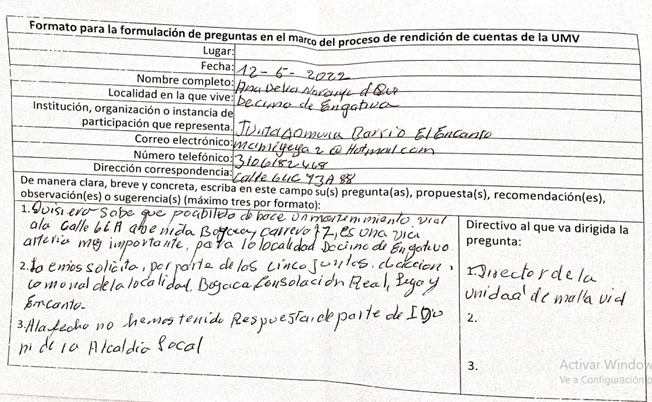 Formato para la formulación de preguntas en el marco del proceso de rendición de cuentas de la UMV
Lugar:
Fecha: 12-5-2022
Nombre completo: Ana Delia Naranjo d
Localidad en la que vive: Decima de Engativa
Institución, organización o instancia de
participación que representa: Junta Comunal Barrio El Encanto
Correo electrónico: mamiyeya2@Hotmail.com
Número telefónico: 3106182468
Dirección correspondencia: Calle 64C 73A 88
De manera clara, breve y concreta, escriba en este campo su(s) pregunta(as), propuesta(s), recomendación(es),
observación(es) o sugerencia(s) (máximo tres por formato):
1. Quisiera sabe que posibilida de hace un mantenimiento vial
a la Calle 66A abenida Boyaca y carrera 72, es una via
arteria muy importante, para la localidad Decima de Engativa
2. lo emos solicita, por parte de los cinco juntas, de accion,
comonal de la localidad. Boyaca Consolación Real, Lugo y
Emcanto.
3. A la fecha no hemos tenido Respuesta, de parte de IDU
ni de la Alcaldia Local
Directivo al que va dirigida la
pregunta:
1. Director de la
unidad de malla vial
2.
3.
Activar Window
Ve a Configuración